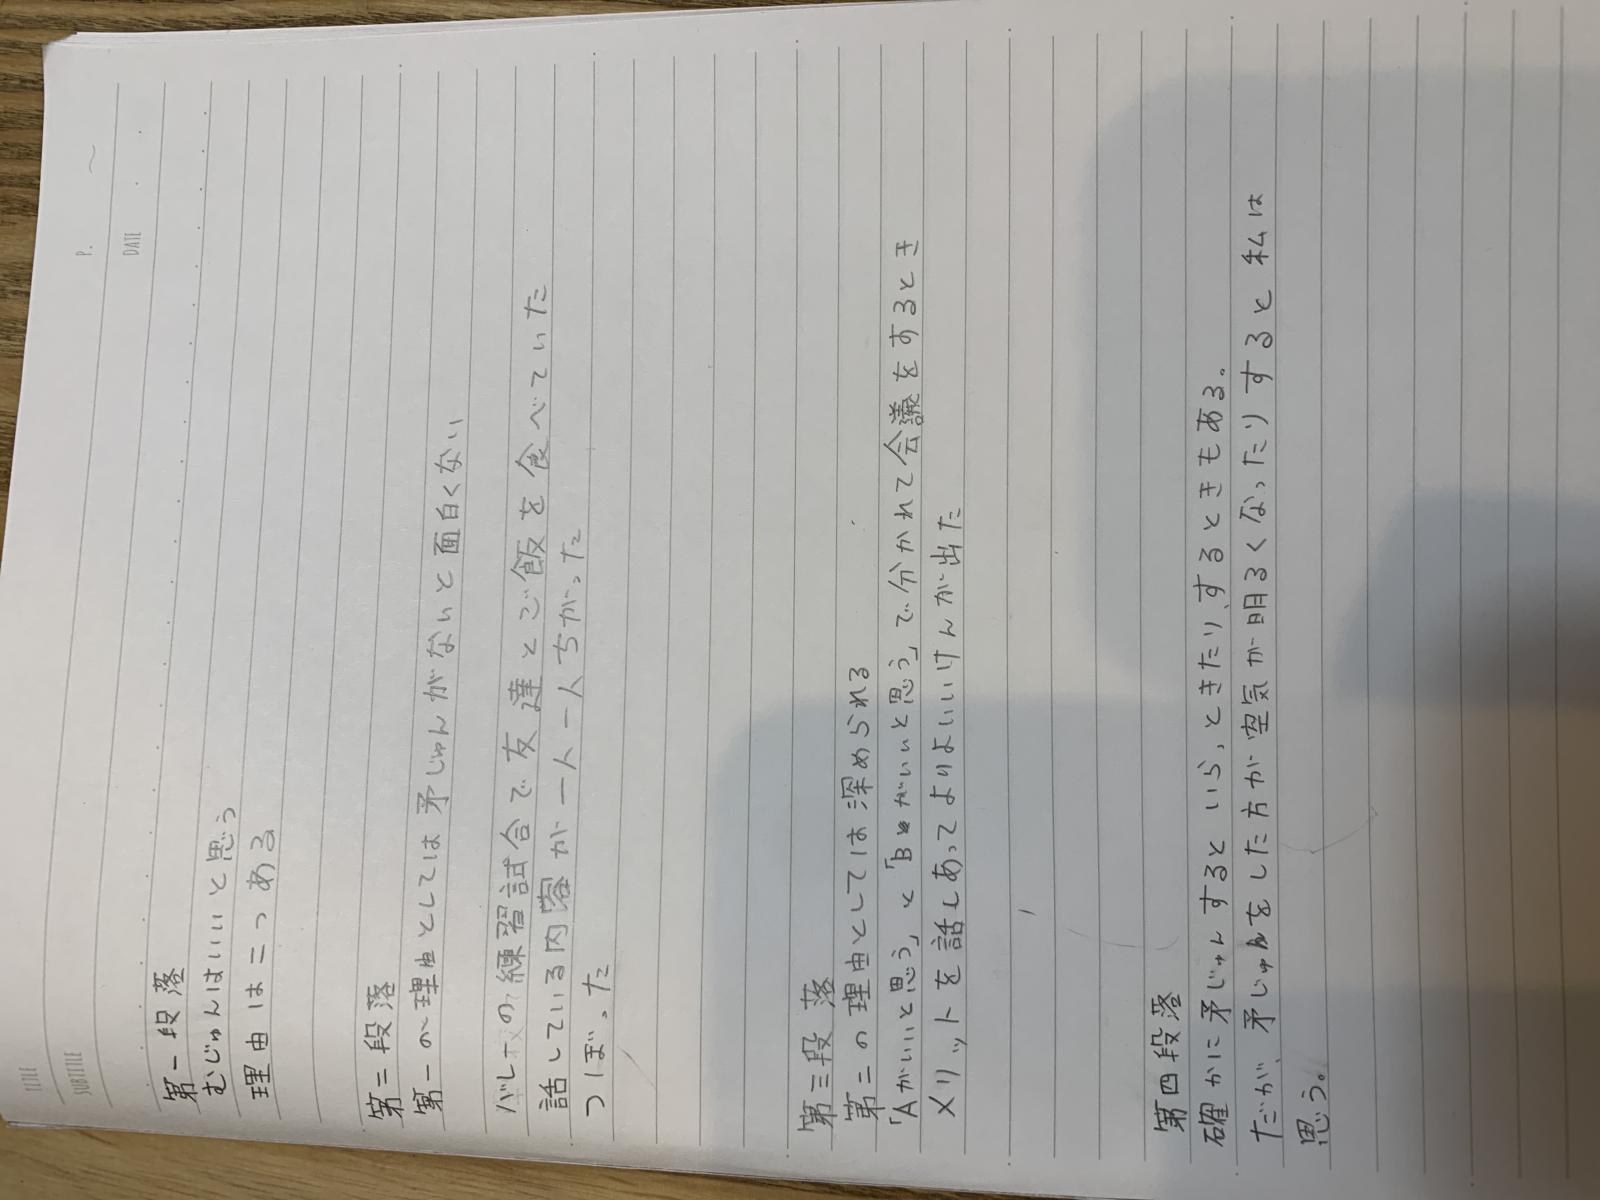 TITLE
P. ~
SUBTITLE
DATE
第一段落
むじゅんはいいと思う
理由は二つある
第二段落
第一の理由としては矛じゅんがないと面白くない
バレーの練習試合で友達とご飯を食べていた
話している内容が一人一人ちがった
つぼった
第三段落
第二の理由としては深められる
「Aがいいと思う」と「Bがいいと思う」で分かれて会議をするとき
メリットを話しあってよりよいいけんが出た
第四段落
確かに矛じゅんするといらっときたりするときもある。
だが、矛じゅんをした方が空気が明るくなったりすると私は
思う。